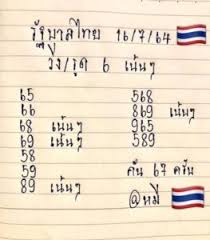 รัฐบาลไทย 16/7/64
วิ่ง/รูด 6 เน้นๆ
65 568
66 869 เน้นๆ
68 เน้นๆ 965
69 เน้นๆ 589
58
59 ค้น 67 ครับ
89 เน้นๆ @หมี